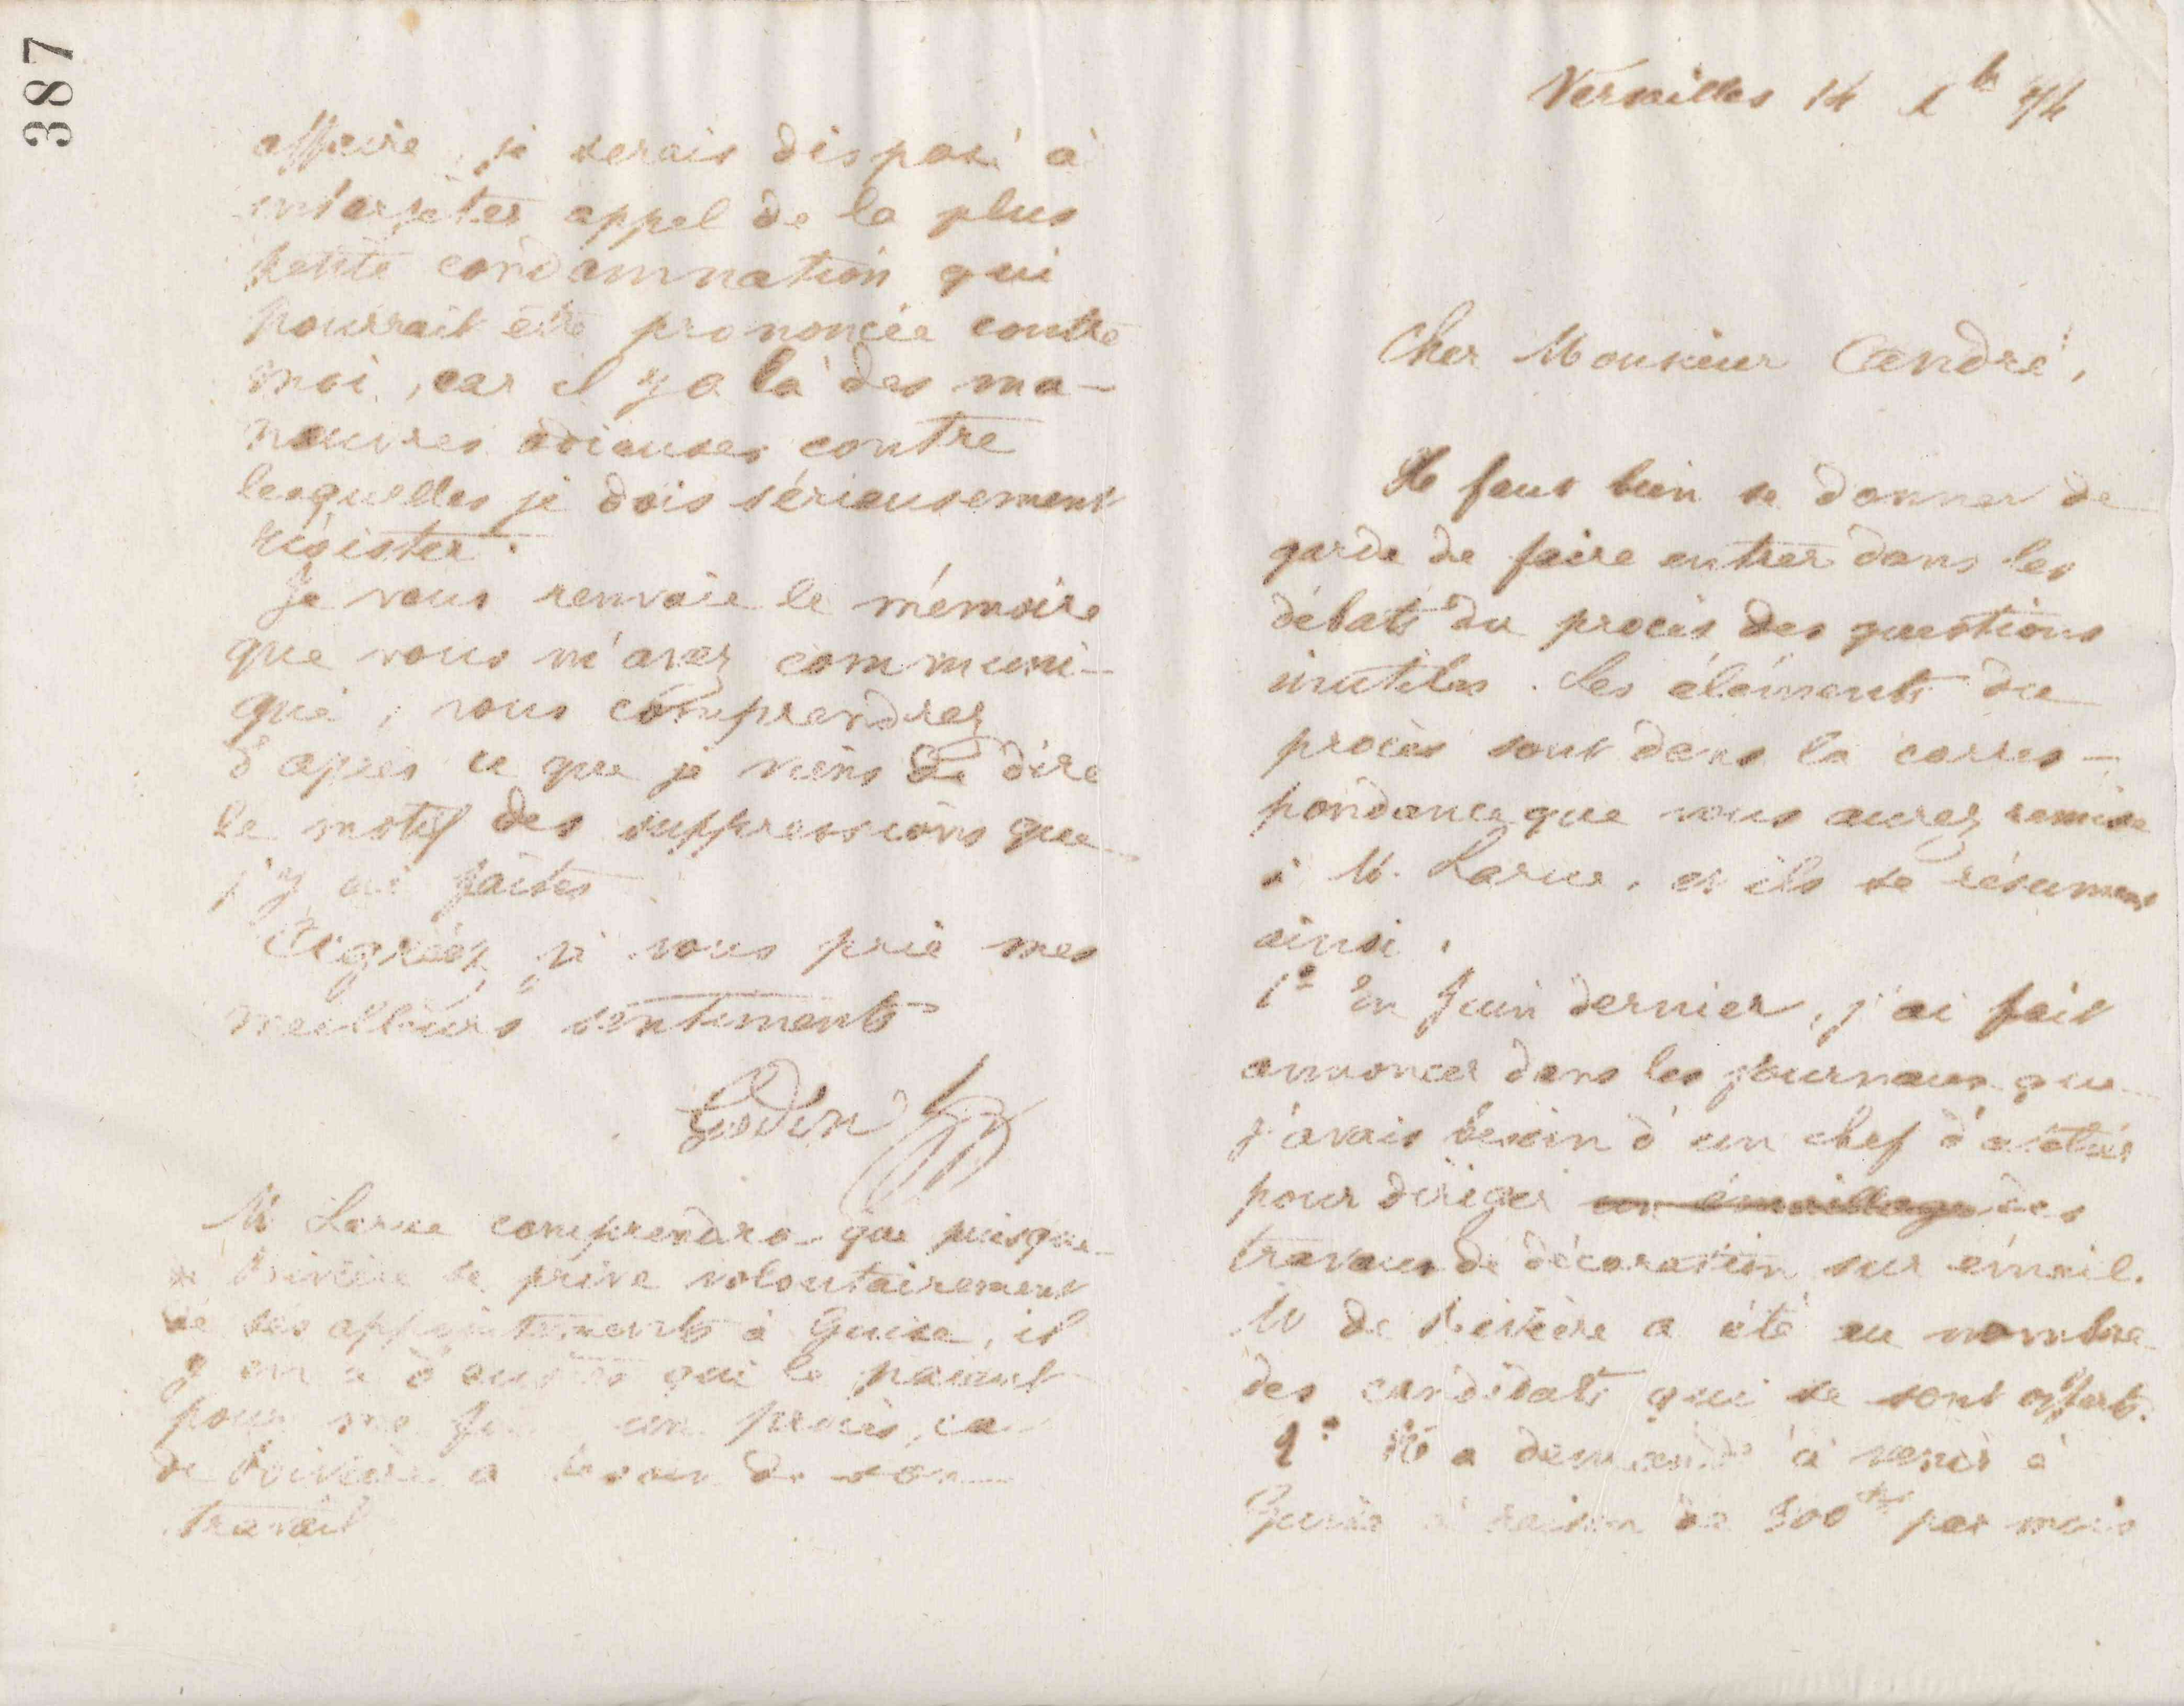 387
affaire, je serais disposé à
interjeter appel de la plus
petite condamnation qui
pourrait être prononcée contre
moi, car il y a là des ma-
nœuvres odieuses contre
lesquelles je dois sérieusement
résister.
Je vous renvoie le mémoire
que vous m'avez communi-
qué, vous comprendrez
d'après ce que je viens de dire
le motif des suppressions que
j'y ai faites.
Agréez, je vous prie mes
meilleurs sentiments
Godin
M Larue comprendra que puisque
de Boivière se prive volontairement
de ses appointements à Guise, il
y en a d'autres qui le paient
pour me un procès, car
de Boivière a besoin de son
travail
Versailles 14 Xbre 74
Cher Monsieur André,
Il faut bien se donner de
garde de faire entrer dans les
débats du procès des questions
inutiles. Les éléments du
procès sont dans la corres-
pondance que vous aurez remise
à M. Larue, et ils se résument
ainsi.
1º En Juin dernier, j'ai fait
annoncer dans les journaux que
j'avais besoin d'un chef d'atelier
pour diriger un émaillage des
travaux de décoration sur émail.
M de Boivière a été au nombre
des candidats qui se sont offerts.
2º Il a demandé à venir à
Guise à raison de 300 frs par mois